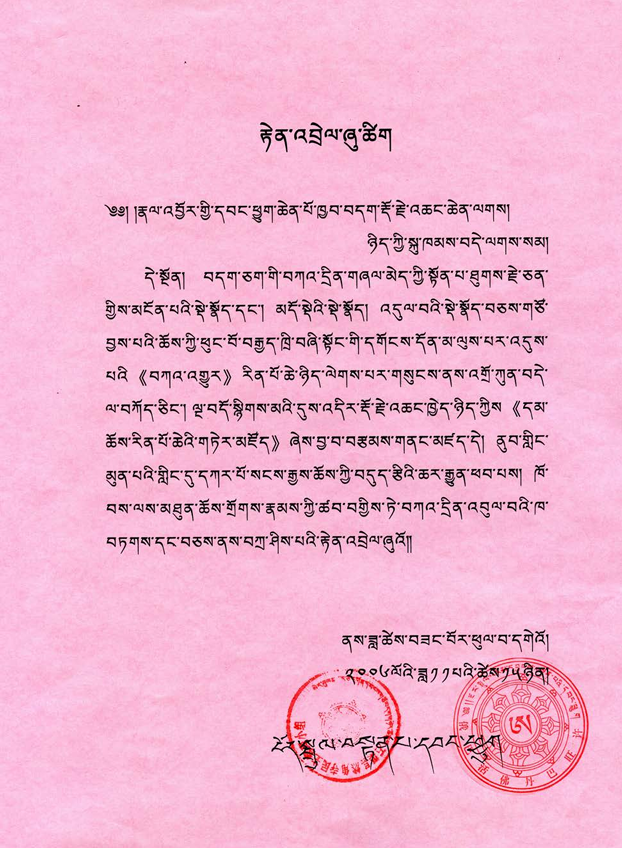 རྟེན་འབྲེལ་ཞུ་ཚིག
༄༅། །རྣལ་འབྱོར་གྱི་དབང་ཕྱུག་ཆེན་པོ་ཁྱབ་བདག་རྡོ་རྗེ་འཆང་ཆེན་ལགས།
ཉིད་ཀྱི་སྐུ་ཁམས་བདེ་ལགས་སམ།
དེ་སྔོན། བདག་ཅག་གི་བཀའ་དྲིན་གཞལ་མེད་ཀྱི་སྟོན་པ་ཐུགས་རྗེ་ཅན་
གྱིས་མངོན་པའི་སྡེ་སྣོད་དང་། མདོ་སྡེའི་སྡེ་སྣོད། འདུལ་བའི་སྡེ་སྣོད་བཅས་གཙོ་
བྱས་པའི་ཆོས་ཀྱི་ཕུང་པོ་བརྒྱད་ཁྲི་བཞི་སྟོང་གི་དགོངས་དོན་མ་ལུས་པར་འདུས་
པའི 《བཀའ་འགྱུར》 རིན་པོ་ཆེ་ཉིད་ལེགས་པར་གསུངས་ནས་འགྲོ་ཀུན་བདེ་
ལ་བཀོད་ཅིང་། ལྔ་བདོ་སྙིགས་མའི་དུས་འདིར་རྡོ་རྗེ་འཆང་ཁྱེད་ཉིད་ཀྱིས 《དམ་
ཆོས་རིན་པོ་ཆེའི་གཏེར་མཛོད》 ཞེས་བྱ་བ་བརྩམས་གནང་མཛད་དེ། ནུབ་གླིང་
མུན་པའི་གླིང་དུ་དཀར་པོ་སངས་རྒྱས་ཆོས་ཀྱི་བདུད་རྩིའི་ཆར་རྒྱུན་ཕབ་པས། ཁོ་
བས་ལས་མཐུན་ཆོས་གྲོགས་རྣམས་ཀྱི་ཚབ་བགྱིས་ཏེ་བཀའ་དྲིན་འབུལ་བའི་ཁ་
བཏགས་དང་བཅས་ནས་བཀྲ་ཤིས་པའི་རྟེན་འབྲེལ་ཞུའོ།།
ནས་ཟླ་ཚེས་བཟང་པོར་ཕུལ་བ་དགེའོ།
༢༠༠༦ལོའི་ཟླ་༡༡པའི་ཚེས་༡༥ཉིན།